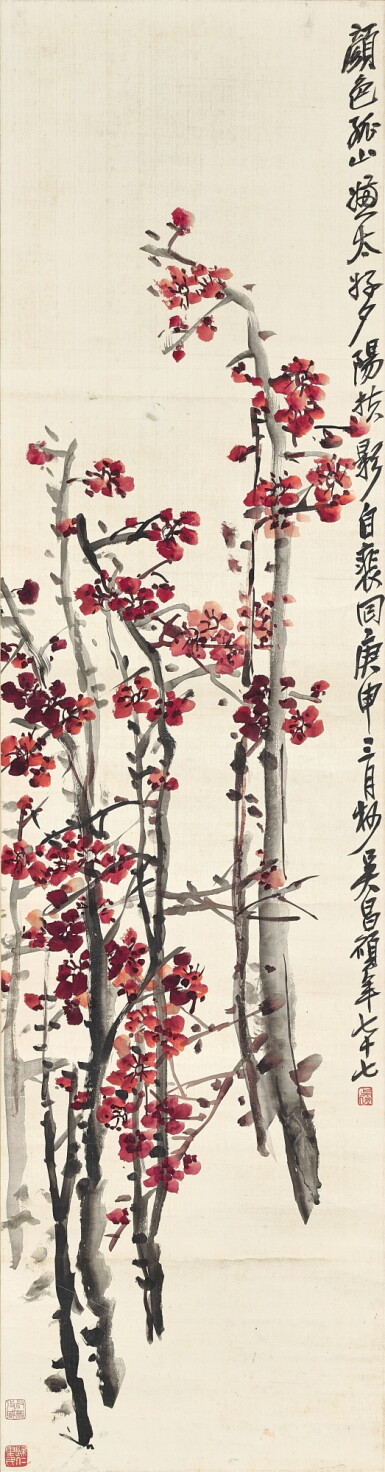 顏色孤山嫵太好夕陽扶影自裴回庚申三月杪吳昌碩年七十七